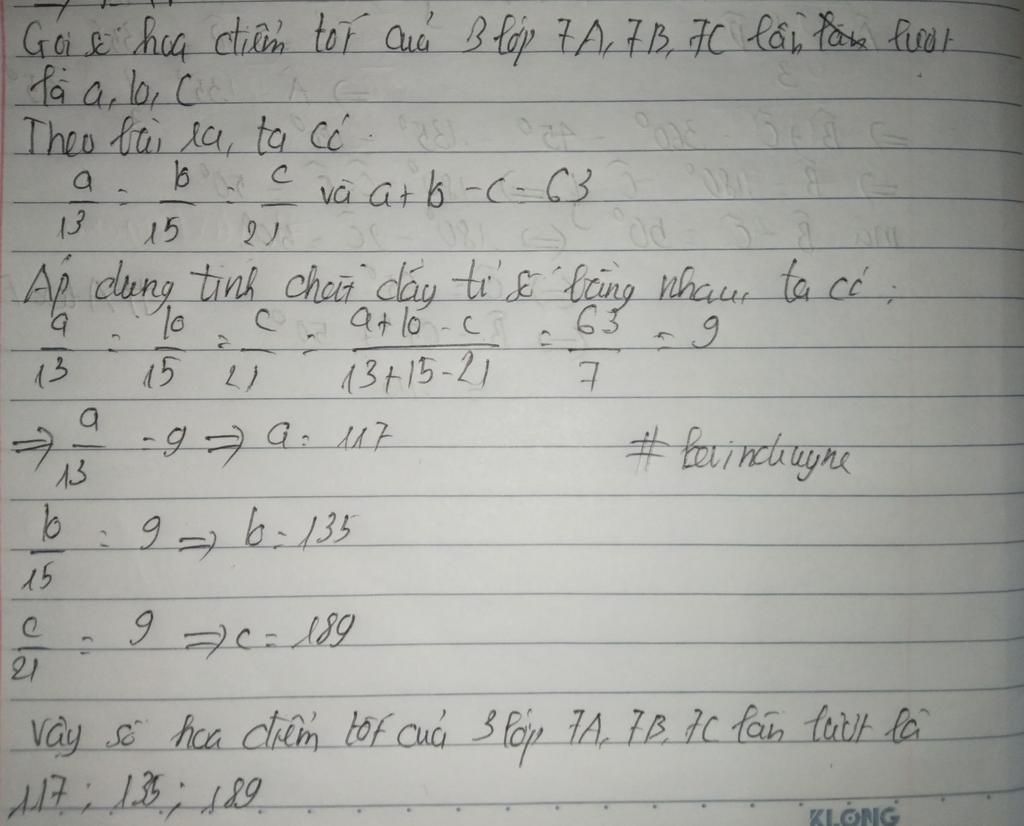 Gọi số hoa điểm tốt của 3 lớp 7A, 7B, 7C lần lượt
là a, b, c
Theo bài ra, ta có
a/13 = b/15 = c/21 và a + b - c = 63
Áp dụng tính chất dãy tỉ số bằng nhau, ta có:
a/13 = b/15 = c/21 = a+b-c/13+15-21 = 63/7 = 9
=> a/13 = 9 => a = 117
b/15 = 9 => b = 135
c/21 = 9 => c = 189
Vậy số hoa điểm tốt của 3 lớp 7A, 7B, 7C lần lượt là
117; 135; 189
KLONG